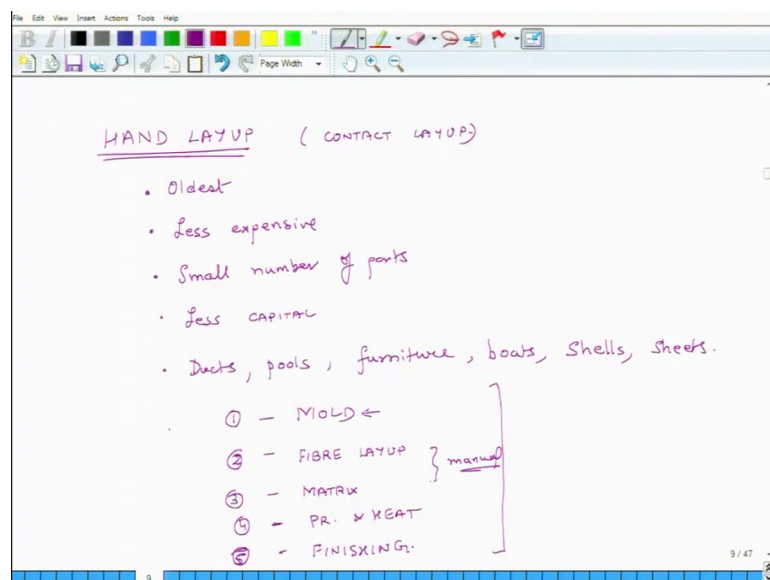 File Edit View Insert Actions Tools Help
B I Page Width
HAND LAYUP ( CONTACT LAYUP)
• Oldest
• Less expensive
• Small number of parts
• Less CAPITAL
• Ducts, pools, furniture, boats, Shells, Sheets.
① - MOLD ←
② - FIBRE LAYUP } manual
③ - MATRIX
④ - PR. & HEAT
⑤ - FINISHING.
9 / 47
9